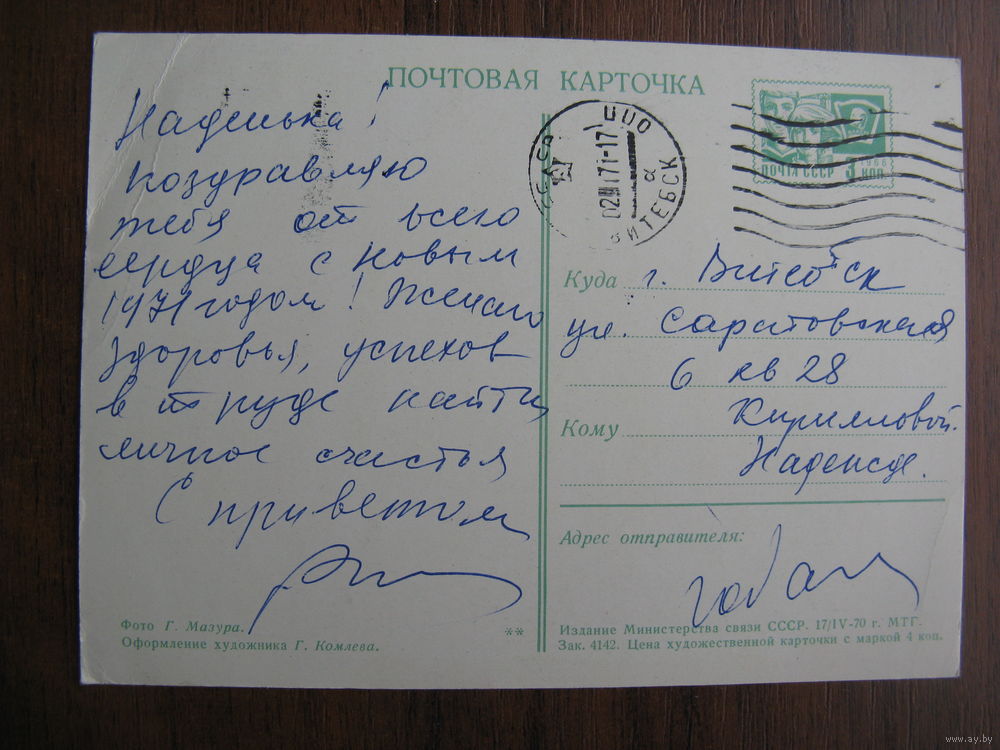 ПОЧТОВАЯ КАРТОЧКА
Наденька!
поздравляю
тебя от всего
сердца с новым
1971 годом! Желаю
здоровья, успехов
в труде найти
личное счастья
С приветом
ПОЧТА СССР 3 КОП
1966
ВИТЕБСК
Куда г. Витебск
ул. Саратовская
6 кв 28
Кому Кирилловой.
Надежде.
Адрес отправителя:
Фото Г. Мазура.
Оформление художника Г. Комлева.
**
Издание Министерства связи СССР. 17/IV-70 г. МТГ.
Зак. 4142. Цена художественной карточки с маркой 4 коп.
www.ay.by